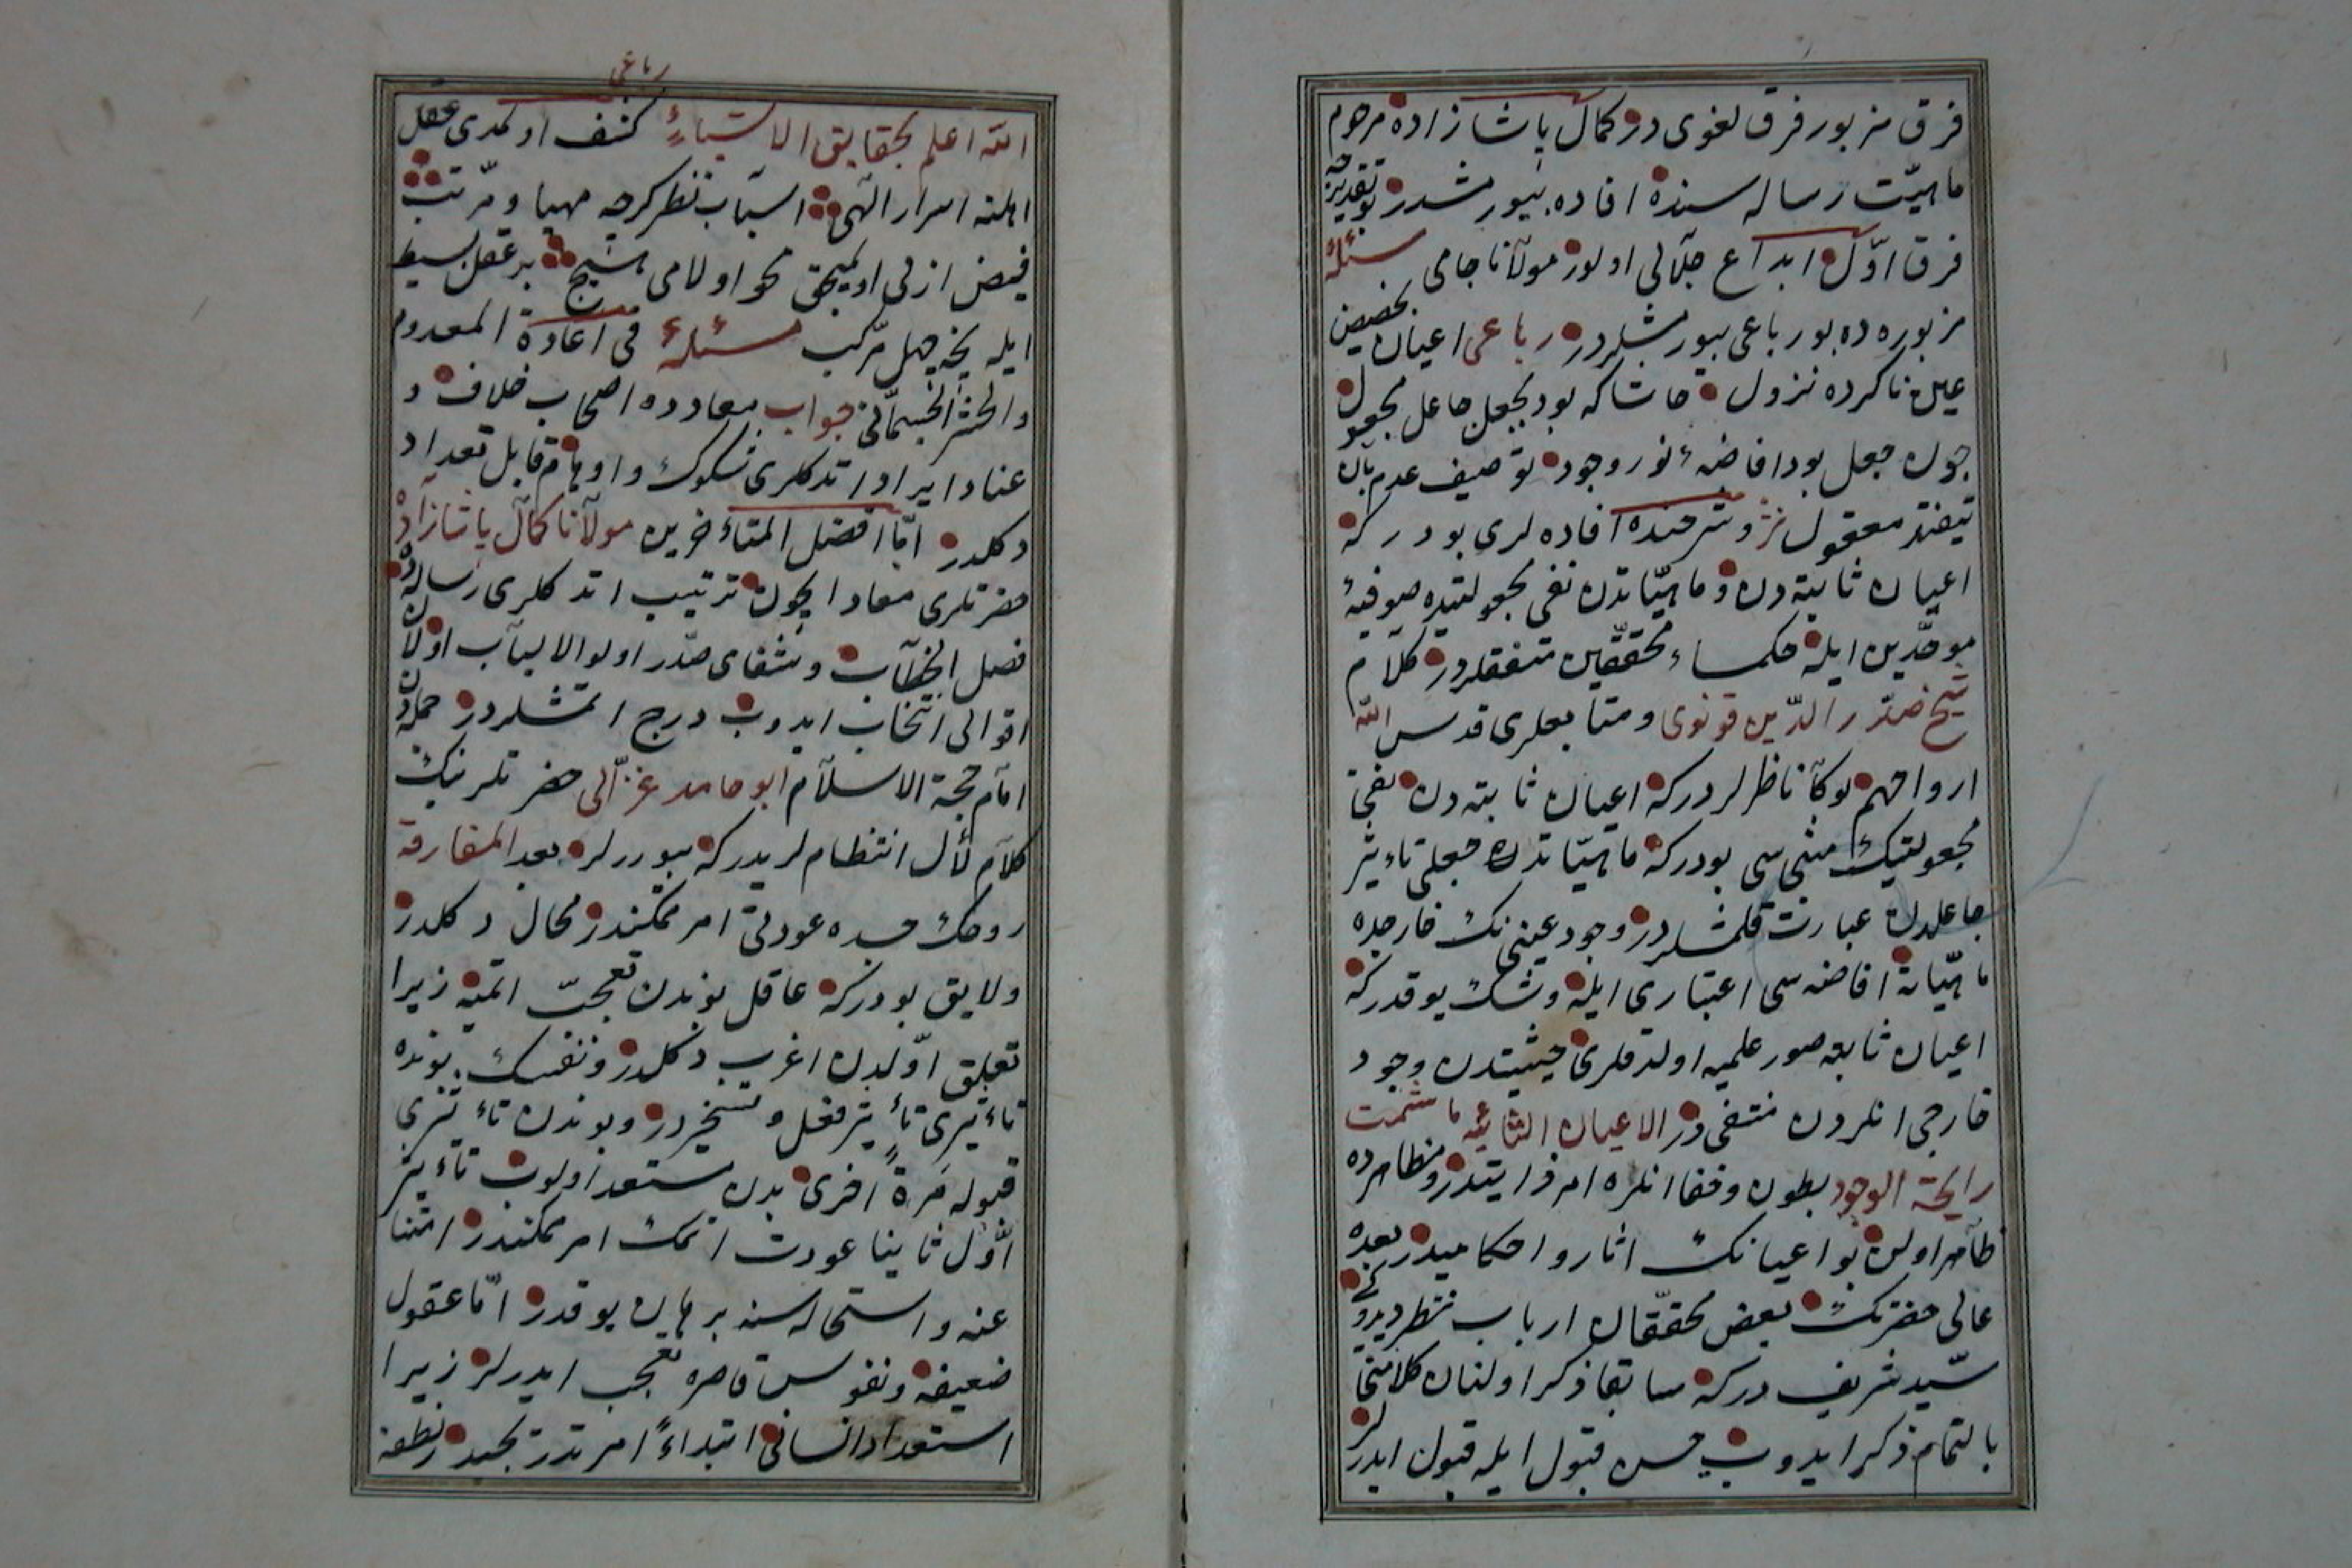 فرق مزبور فرق لغوی در کمال پاشا زاده مرحوم
ماهیّت رساله سنده افاده بیورمشدر بو تقدیرجه
فرق اوّل ابداع جلالی اولور مولانا جامی مسئلهٔ
مزبوره ده بو رباعی بیورمشلردر رباعی اعیان بحضیض
عین ناکرده نزول حاشا که بود بجعل جاعل مجعول
چون جعل بود افاضهٔ نور وجود توصیف عدم بآن
نیفتد معقول نثر و شرحنده افاده لری بودر که
اعیان ثابته دن و ماهیّاتدن نفی مجعولیتده صوفیهٔ
موحّدین ایله حکماء محقّقین متفقلردر کلام
شیخ صدر الدّین قونوی و متابعلری قدس الله
ارواحهم بوکا ناظرلردر که اعیان ثابته دن نفی
مجعولیتیک مبنی سی بودر که ماهیّاتدن جعلی تاءثیر
جاعلدن عبارت قلمشلردر وجود عینی نک خارجده
ماهیّاته افاضه سی اعتباری ایله و شک یوقدر که
اعیان ثابته صور علمیه اولدقلری حیثیتدن وجود
خارجی انلردن منتفی در الاعیان الثابتة ما شمت
رایحة الوجود بطون و خفا انلره امر ذاتیدر و مظاهرده
ظاهر اولن بو اعیانک اثار و احکامیدر بعده
عالی حضرتک بعض محقّقان ارباب نظر دیدوکی
سیّد شریف در که سابقا ذکر اولنان کلامنی
بالتمام ذکر ایدوب حسن قبول ایله قبول ایدرلر
رباعی
الله اعلم بحقایق الاشیاء کشف اولمدی عقل
اهلنه اسرار الهی اسباب نظر کرچه مهیا و مرتب
فیض ازلی اولمیجق محو اولامی هیچ بر عقل بسیط
ایله نیجه جهل مرکب مسئلهٔ فی اعادة المعدوم
والحشر الجسمانی جواب معادده اصحاب خلاف و
عناد ایراد اتدکلری شکوک و اوهام قابل تعداد
دکلدر امّا افضل المتاءخرین مولانا کمال پاشا زاده
حضرتلری معاد ایچون ترتیب اتدکلری رساله ده
فصل الخطاب و شفای صدر اولو الالباب اولان
اقوالی انتخاب ایدوب درج اتمشلردر جمله دن
امام حجة الاسلام ابو حامد غزّالی حضرتلرینک
کلام لأل انتظاملریدر که بیوررلر بعد المفارقة
روحک جسده عودتی امر ممکندر محال دکلدر
ولایق بودر که عاقل بوندن تعجّب اتمیه زیرا
تعلق اوّلدن اغرب دکلدر و نفسک بونده
تاءثیری تأثیر فعل و تسخیردر و بوندن تاءثری
قبوله مرة اخری بدن مستعد اولوب تاءثیر
اوّل ثانیا عودت اتمک امر ممکندر امتنا
عنه و استحاله سنه برهان یوقدر امّا عقول
ضعیفه و نفوس قاصره تعجب ایدرلر زیرا
استعداد انسانی ابتداءً امر تدریجیدر نطفه